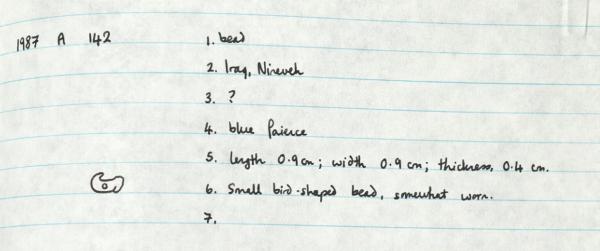 1987 A 142 1. bead
2. Iraq, Nineveh
3. ?
4. blue faience
5. length 0.9 cm; width 0.9 cm; thickness, 0.4 cm.
6. Small bird-shaped bead, somewhat worn.
7.